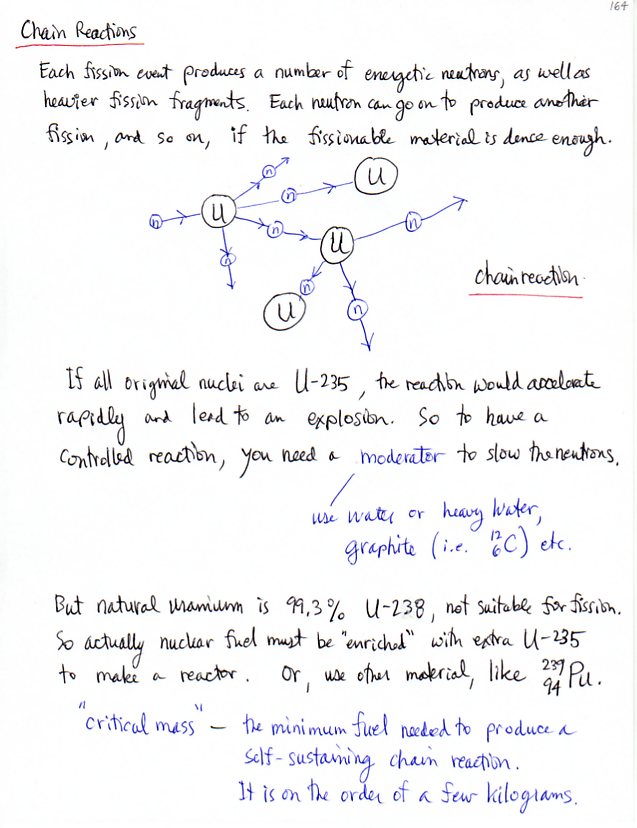 164
Chain Reactions
Each fission event produces a number of energetic neutrons, as well as
heavier fission fragments. Each neutron can go on to produce another
fission, and so on, if the fissionable material is dence enough.
n
n U
n U n n
U n
n
U n
chain reaction.
If all original nuclei are U-235, the reaction would accelerate
rapidly and lead to an explosion. So to have a
controlled reaction, you need a moderator to slow the neutrons.
use water or heavy water,
graphite (i.e. ¹²₆C) etc.
But natural uranium is 99.3% U-238, not suitable for fission.
So actually nuclear fuel must be "enriched" with extra U-235
to make a reactor. Or, use other material, like ²³⁹₉₄Pu.
"critical mass" – the minimum fuel needed to produce a
self-sustaining chain reaction.
It is on the order of a few kilograms.